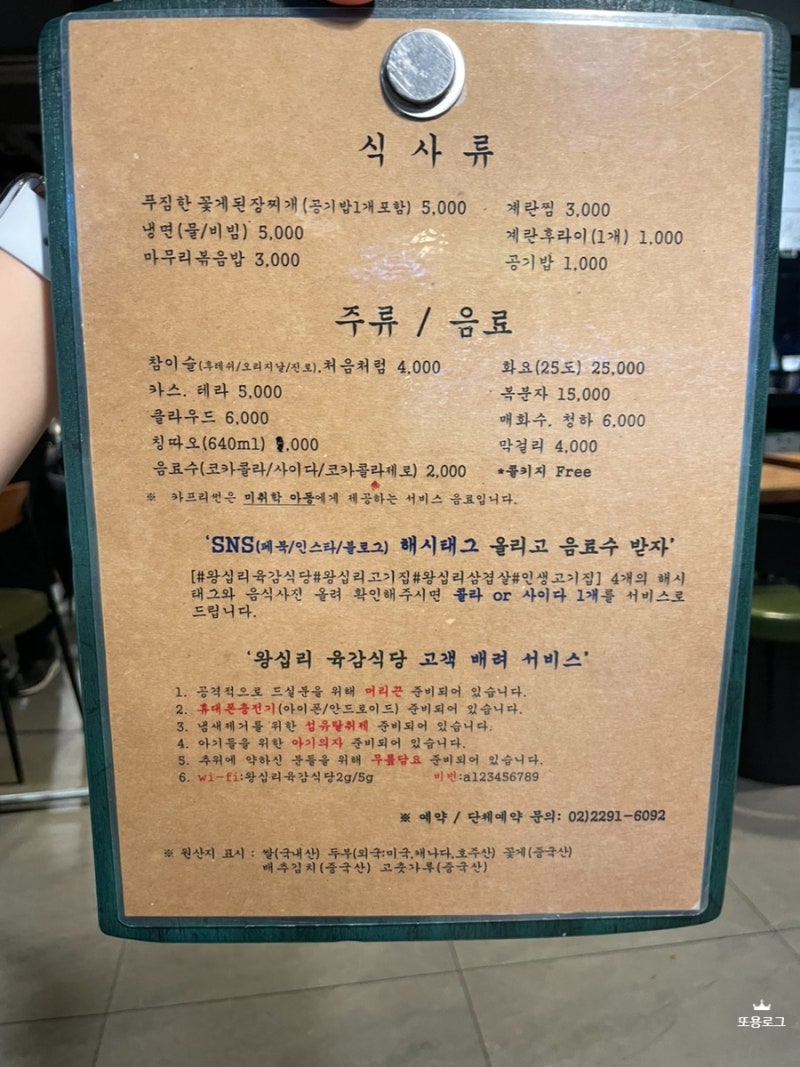 식 사 류
푸짐한 꽃게된장찌개(공기밥1개포함) 5,000
냉면(물/비빔) 5,000
마무리볶음밥 3,000
계란찜 3,000
계란후라이(1개) 1,000
공기밥 1,000
주류 / 음료
참이슬(후레쉬/오리지날/진로),처음처럼 4,000
카스. 테라 5,000
클라우드 6,000
칭따오(640ml) ,000
음료수(코카콜라/사이다/코카콜라제로) 2,000
화요(25도) 25,000
복분자 15,000
매화수. 청하 6,000
막걸리 4,000
*콜키지 Free
※ 카프리썬은 미취학 아동에게 제공하는 서비스 음료입니다.
'SNS(페북/인스타/블로그) 해시태그 올리고 음료수 받자'
[#왕십리육감식당#왕십리고기집#왕십리삼겹살#인생고기집] 4개의 해시
태그와 음식사진 올려 확인해주시면 콜라 or 사이다 1개를 서비스로
드립니다.
'왕십리 육감식당 고객 배려 서비스'
1. 공격적으로 드실분을 위해 머리끈 준비되어 있습니다.
2. 휴대폰충전기(아이폰/안드로이드) 준비되어 있습니다.
3. 냄새제거를 위한 섬유탈취제 준비되어 있습니다.
4. 아기들을 위한 아기의자 준비되어 있습니다.
5. 추위에 약하신 분들을 위해 무릎담요 준비되어 있습니다.
6. wi-fi:왕십리육감식당2g/5g 비번:a123456789
※ 예약 / 단체예약 문의: 02)2291-6092
※ 원산지 표시 : 쌀(국내산) 두부(외국:미국,캐나다,호주산) 꽃게(중국산)
배추김치(중국산) 고춧가루(중국산)
또용로그